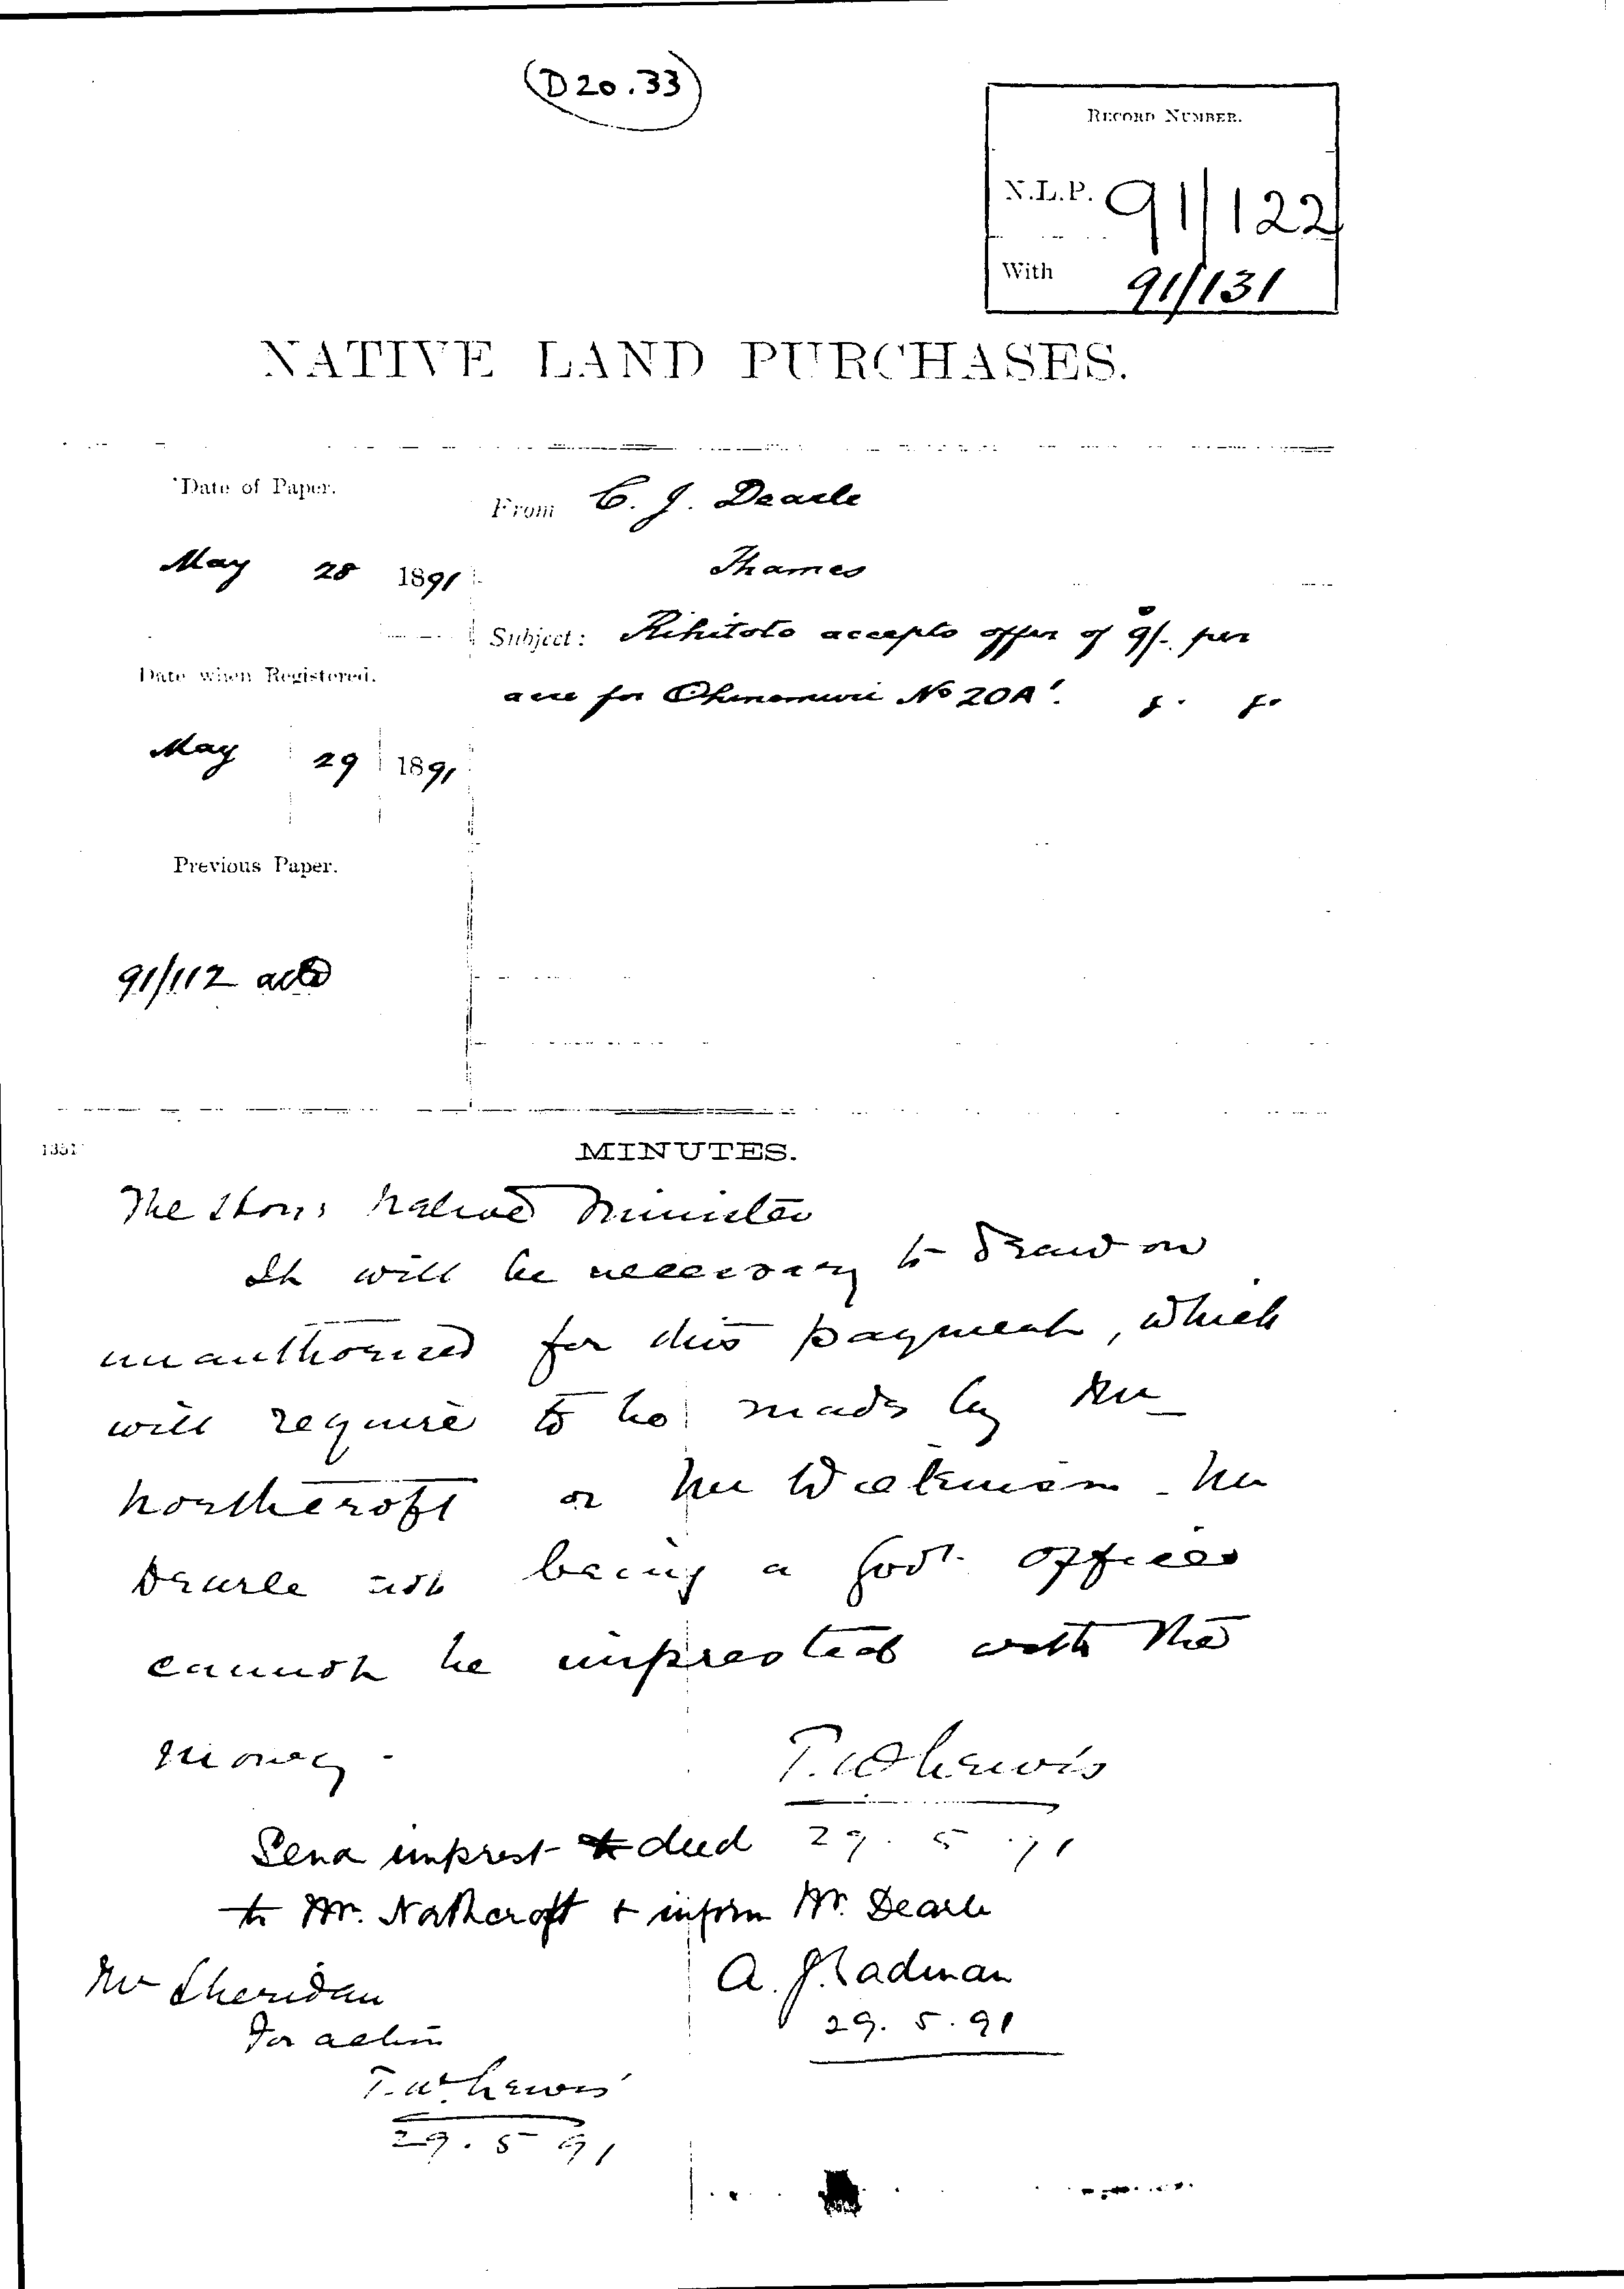 (D20.33)
RECORD NUMBER.
N.L.P. 91/122
With 91/131
NATIVE LAND PURCHASES.
Date of Paper.
From C. J. Dearle
May 28 1891
Thames
Subject: Rihitoto accepts offer of 9/- per
acre for Ohinemuri No 20A.
Date when Registered.
May 29 1891
Previous Paper.
91/112 attd
1351
MINUTES.
The Hon: Native Minister
It will be necessary to draw on
unauthorised for this payment, which
will require to be made by Mr
Northcroft or Mr Wilkinson - Mr
Dearle not being a Govt. Officer
cannot be imprested with the
money -
T. W Lewis
29. 5 .91
Send imprest & deed
to Mr. Northcroft & inform Mr. Dearle
A. J. Cadman
29. 5. 91
Mr Sheridan
For action
T. W. Lewis
29. 5 91